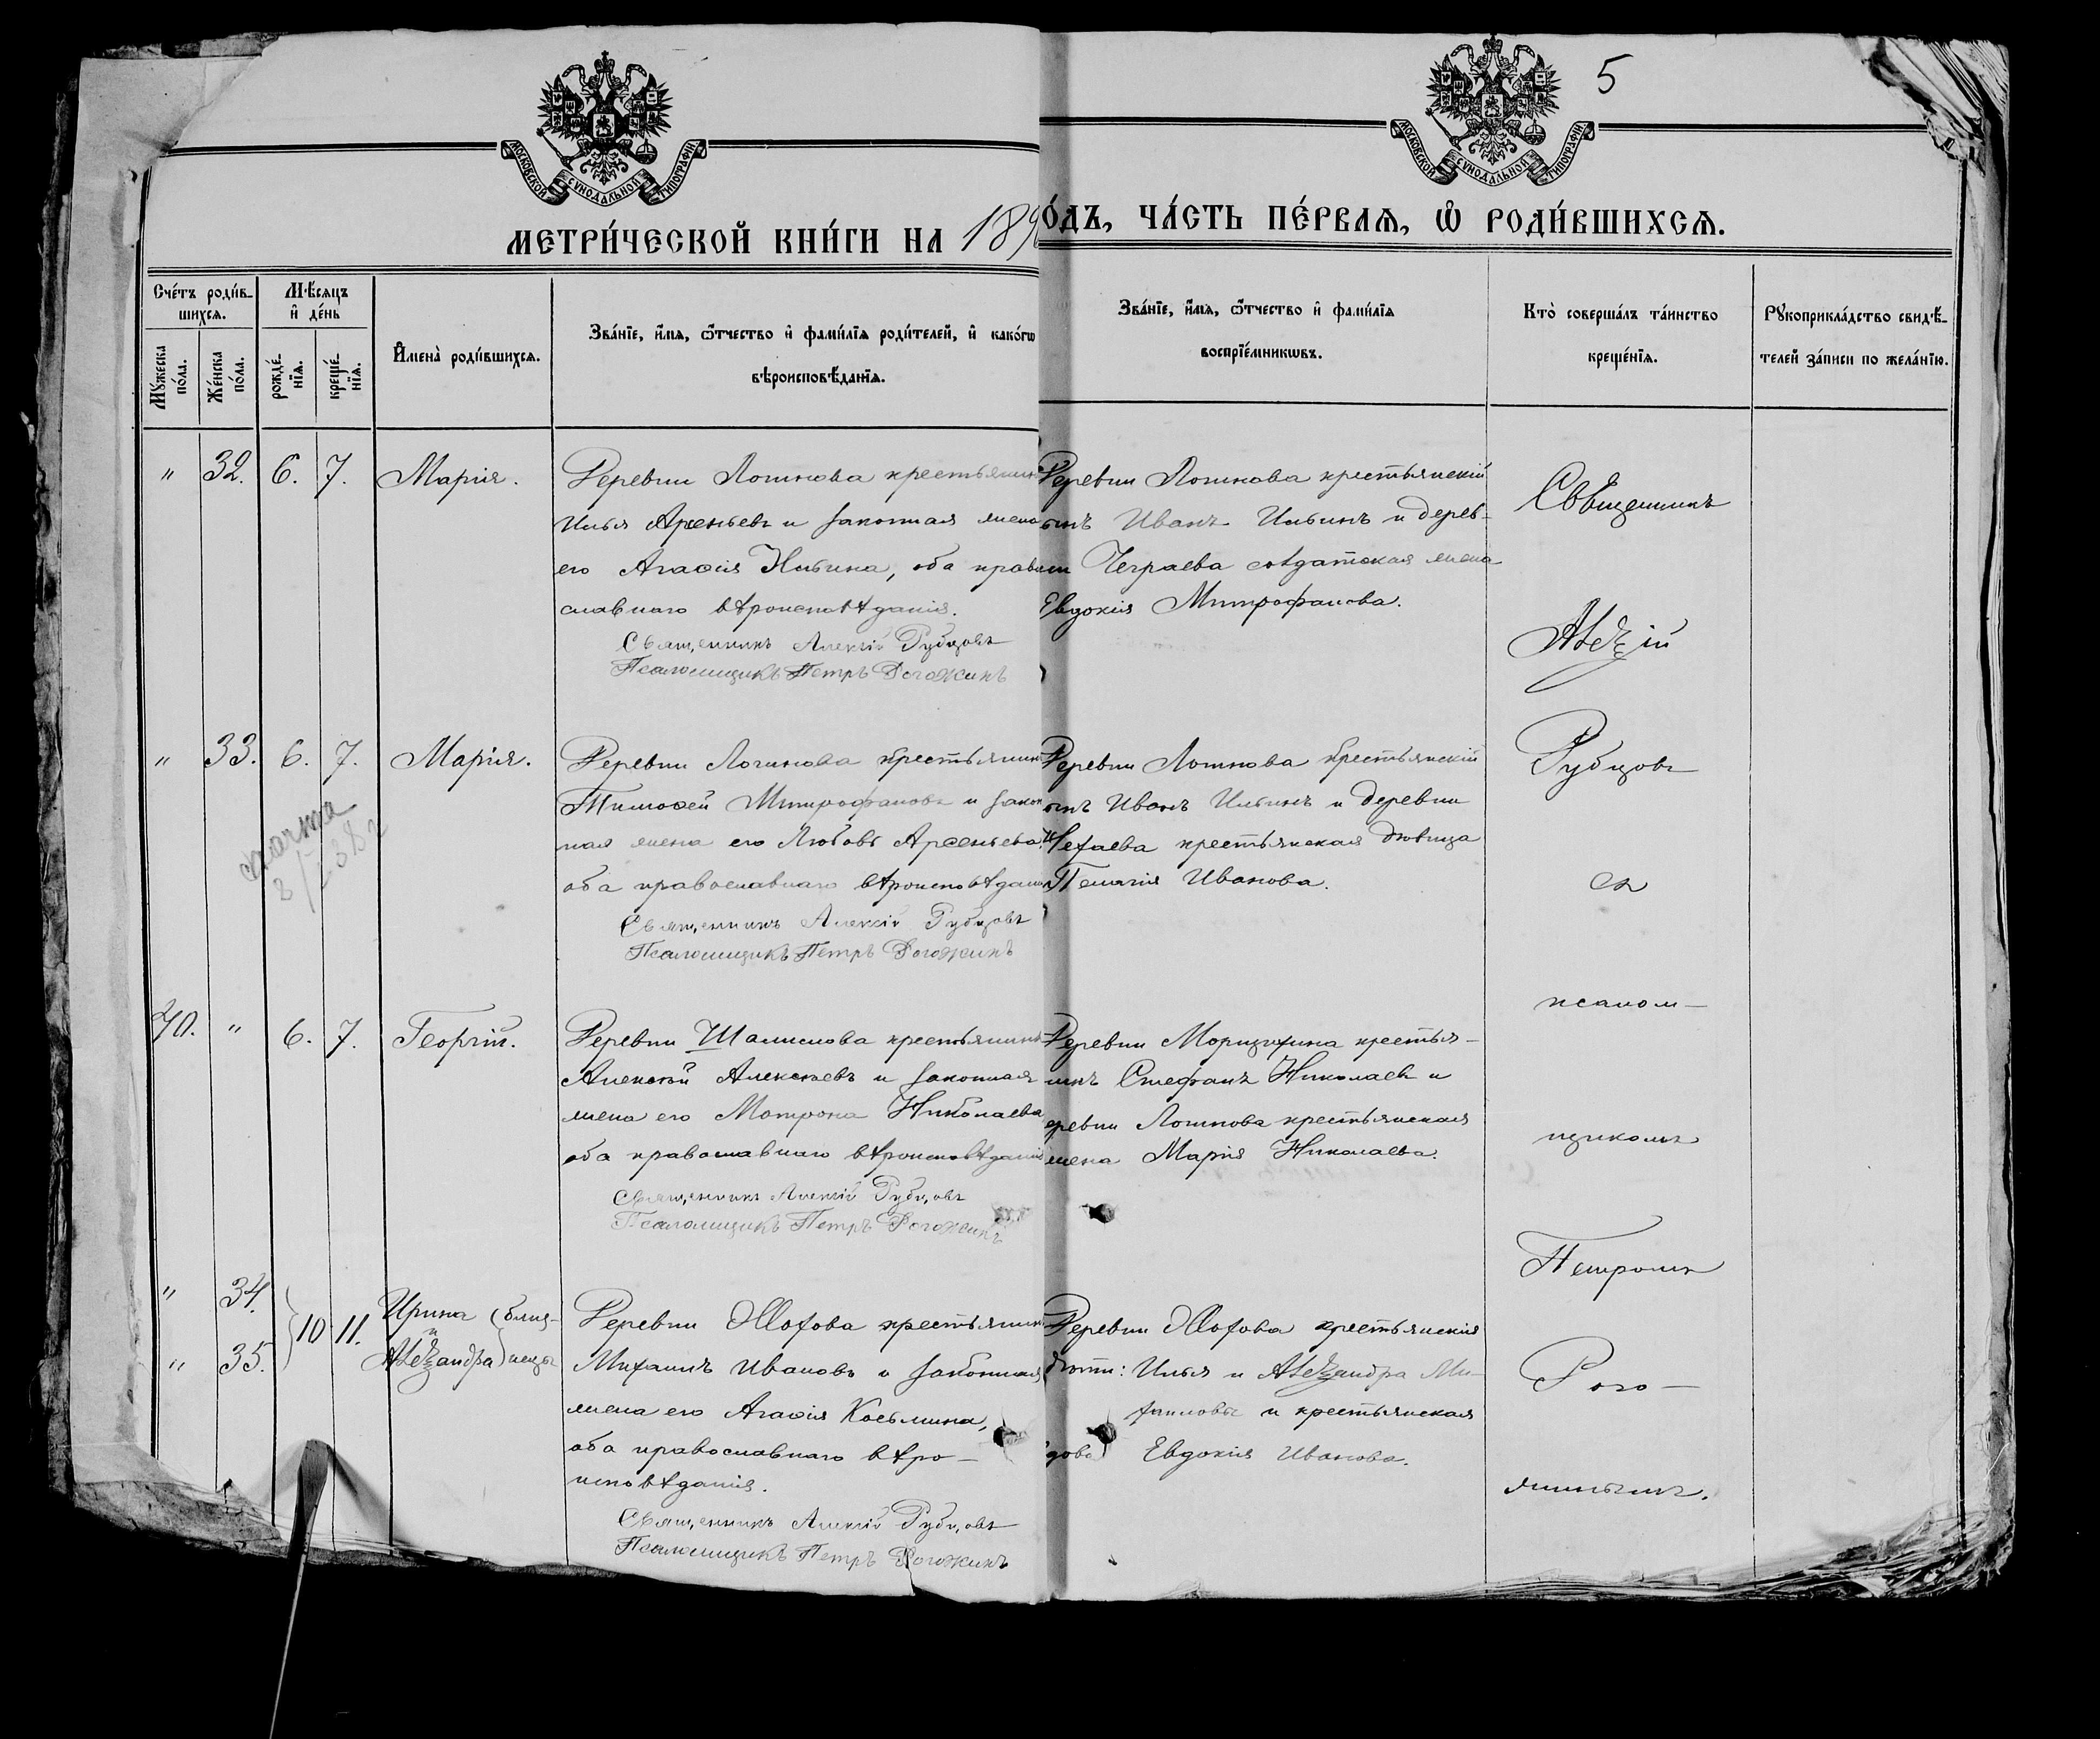 5
МОСКОВСКОЙ СѴНОДАЛЬНОЙ ТИПОГРАФІИ
МОСКОВСКОЙ СѴНОДАЛЬНОЙ ТИПОГРАФІИ
МЕТРИ́ЧЕСКОЙ КНИ́ГИ НА 189
О́ДЪ, ЧА́СТЬ ПЕ́РВАѦ, Ѡ РОДИ́ВШИХСѦ.
Сче́тъ роди́в-
шихсѧ.
Мꙋ́жеска по́ла.
Же́нска по́ла.
Мѣ́сѧцъ
и҆ де́нь
рожде́-нїѧ.
креще́-нїѧ.
И҆мена̀ роди́вшихсѧ.
Зва́нїе, и҆́мѧ, ѻ҆́тчество и҆ фами́лїѧ роди́телей, и҆ како́гѡ
вѣроисповѣ́данїѧ.
Зва́нїе, и҆́мѧ, ѻ҆́тчество и҆ фами́лїѧ
воспрїе́мникѡвъ.
Кто̀ соверша́лъ та́инство
креще́нїѧ.
Рꙋкоприкла́дство свидѣ́-
телей за́писи по жела́нїю.
" 32. 6. 7. Марія.
Деревни Логинова крестьянинъ
Илья Арсеньевъ и законная жена
его Агаѳія Ильина, оба право
славнаго вѣроисповѣданія.
Священникъ Алексій Рубцовъ
Псаломщикъ Петръ Рогожинъ
Деревни Логинова крестьянскій
сынъ Иванъ Ильинъ и дерев-
ни Чеграева солдатская жена
Евдокія Митрофанова.
" 33. 6. 7. Марія.
Деревни Логинова крестьянинъ
Тимоѳей Митрофановъ и закон
ная жена его Любовь Арсеньева,
оба православнаго вѣроисповѣдан
Священникъ Алексій Рубцовъ
Псаломщикъ Петръ Рогожинъ
Деревни Логинова крестьянскій
сынъ Иванъ Ильинъ и деревни
Нехаева крестьянская дѣвица
Пелагія Иванова.
40. " 6. 7. Георгій.
Деревни Шалимова крестьянинъ
Алексѣй Алексѣевъ и законная
жена его Матрона Николаева
оба православнаго вѣроисповѣданія
Священникъ Алексій Рубцовъ
Псаломщикъ Петръ Рогожинъ
Деревни крестья-
нинъ Стефанъ Николаевъ и
деревни Логинова крестьянская
жена Марія Николаева.
" 34. 10 11. Ирина (близ-
и
" 35. Александра) нецы
Деревни Мохова крестьянинъ
Михаилъ Ивановъ и законная
жена его Агаѳія Косьмина,
оба православнаго вѣро-
исповѣданія.
Священникъ Алексій Рубцовъ
Псаломщикъ Петръ Рогожинъ
Деревни Мохова крестьянскія
дѣти: Илья и Александра Ми-
хаиловы и крестьянская
вдова Евдокія Иванова.
Священникъ
Алексій
Рубцовъ
съ
псалом-
щикомъ
Петромъ
Рого-
жинымъ.